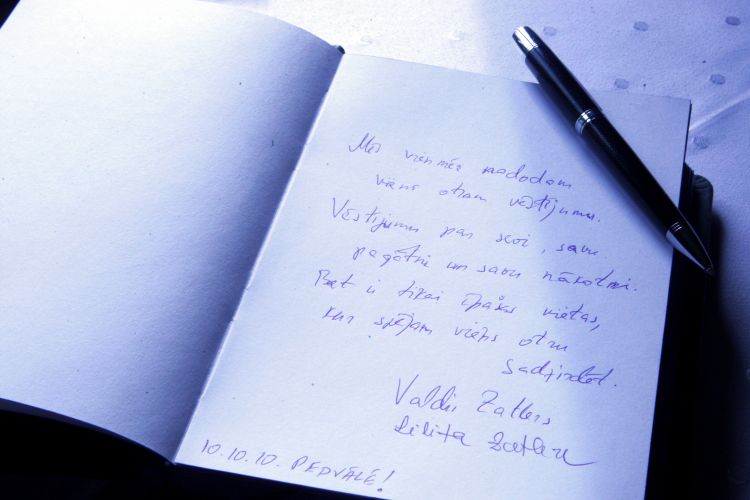 Mēs vienmēr nododam
viens otram vēstījumu.
Vēstījumu par sevi, savu
pagātni un savu nākotni.
Bet ir tikai īpašas vietas,
kur spējam viens otru
sadzirdēt.
Valdis Zatlers
Lilita Zatlere
10.10.10. PEDVĀLĒ!